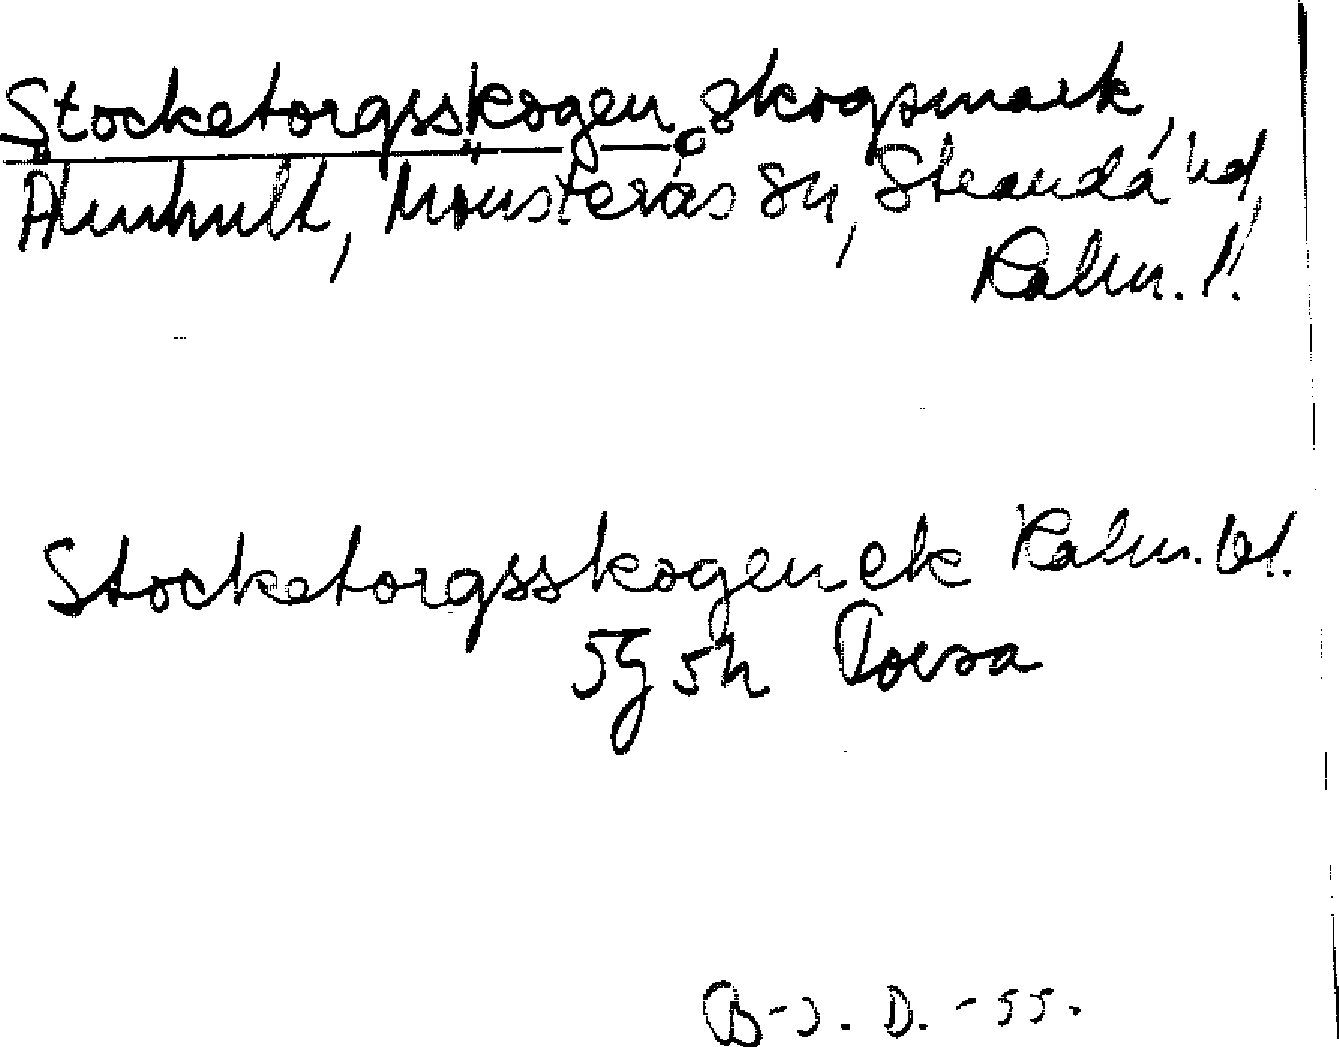 Stocketorgsskogen, skogsmark,
Älmhult, Mönsterås sn, Stranda hd,
Kalm. l.
Stocketorgsskogen ek Kalm. bl.
5g 5h
B-J. D. -55.